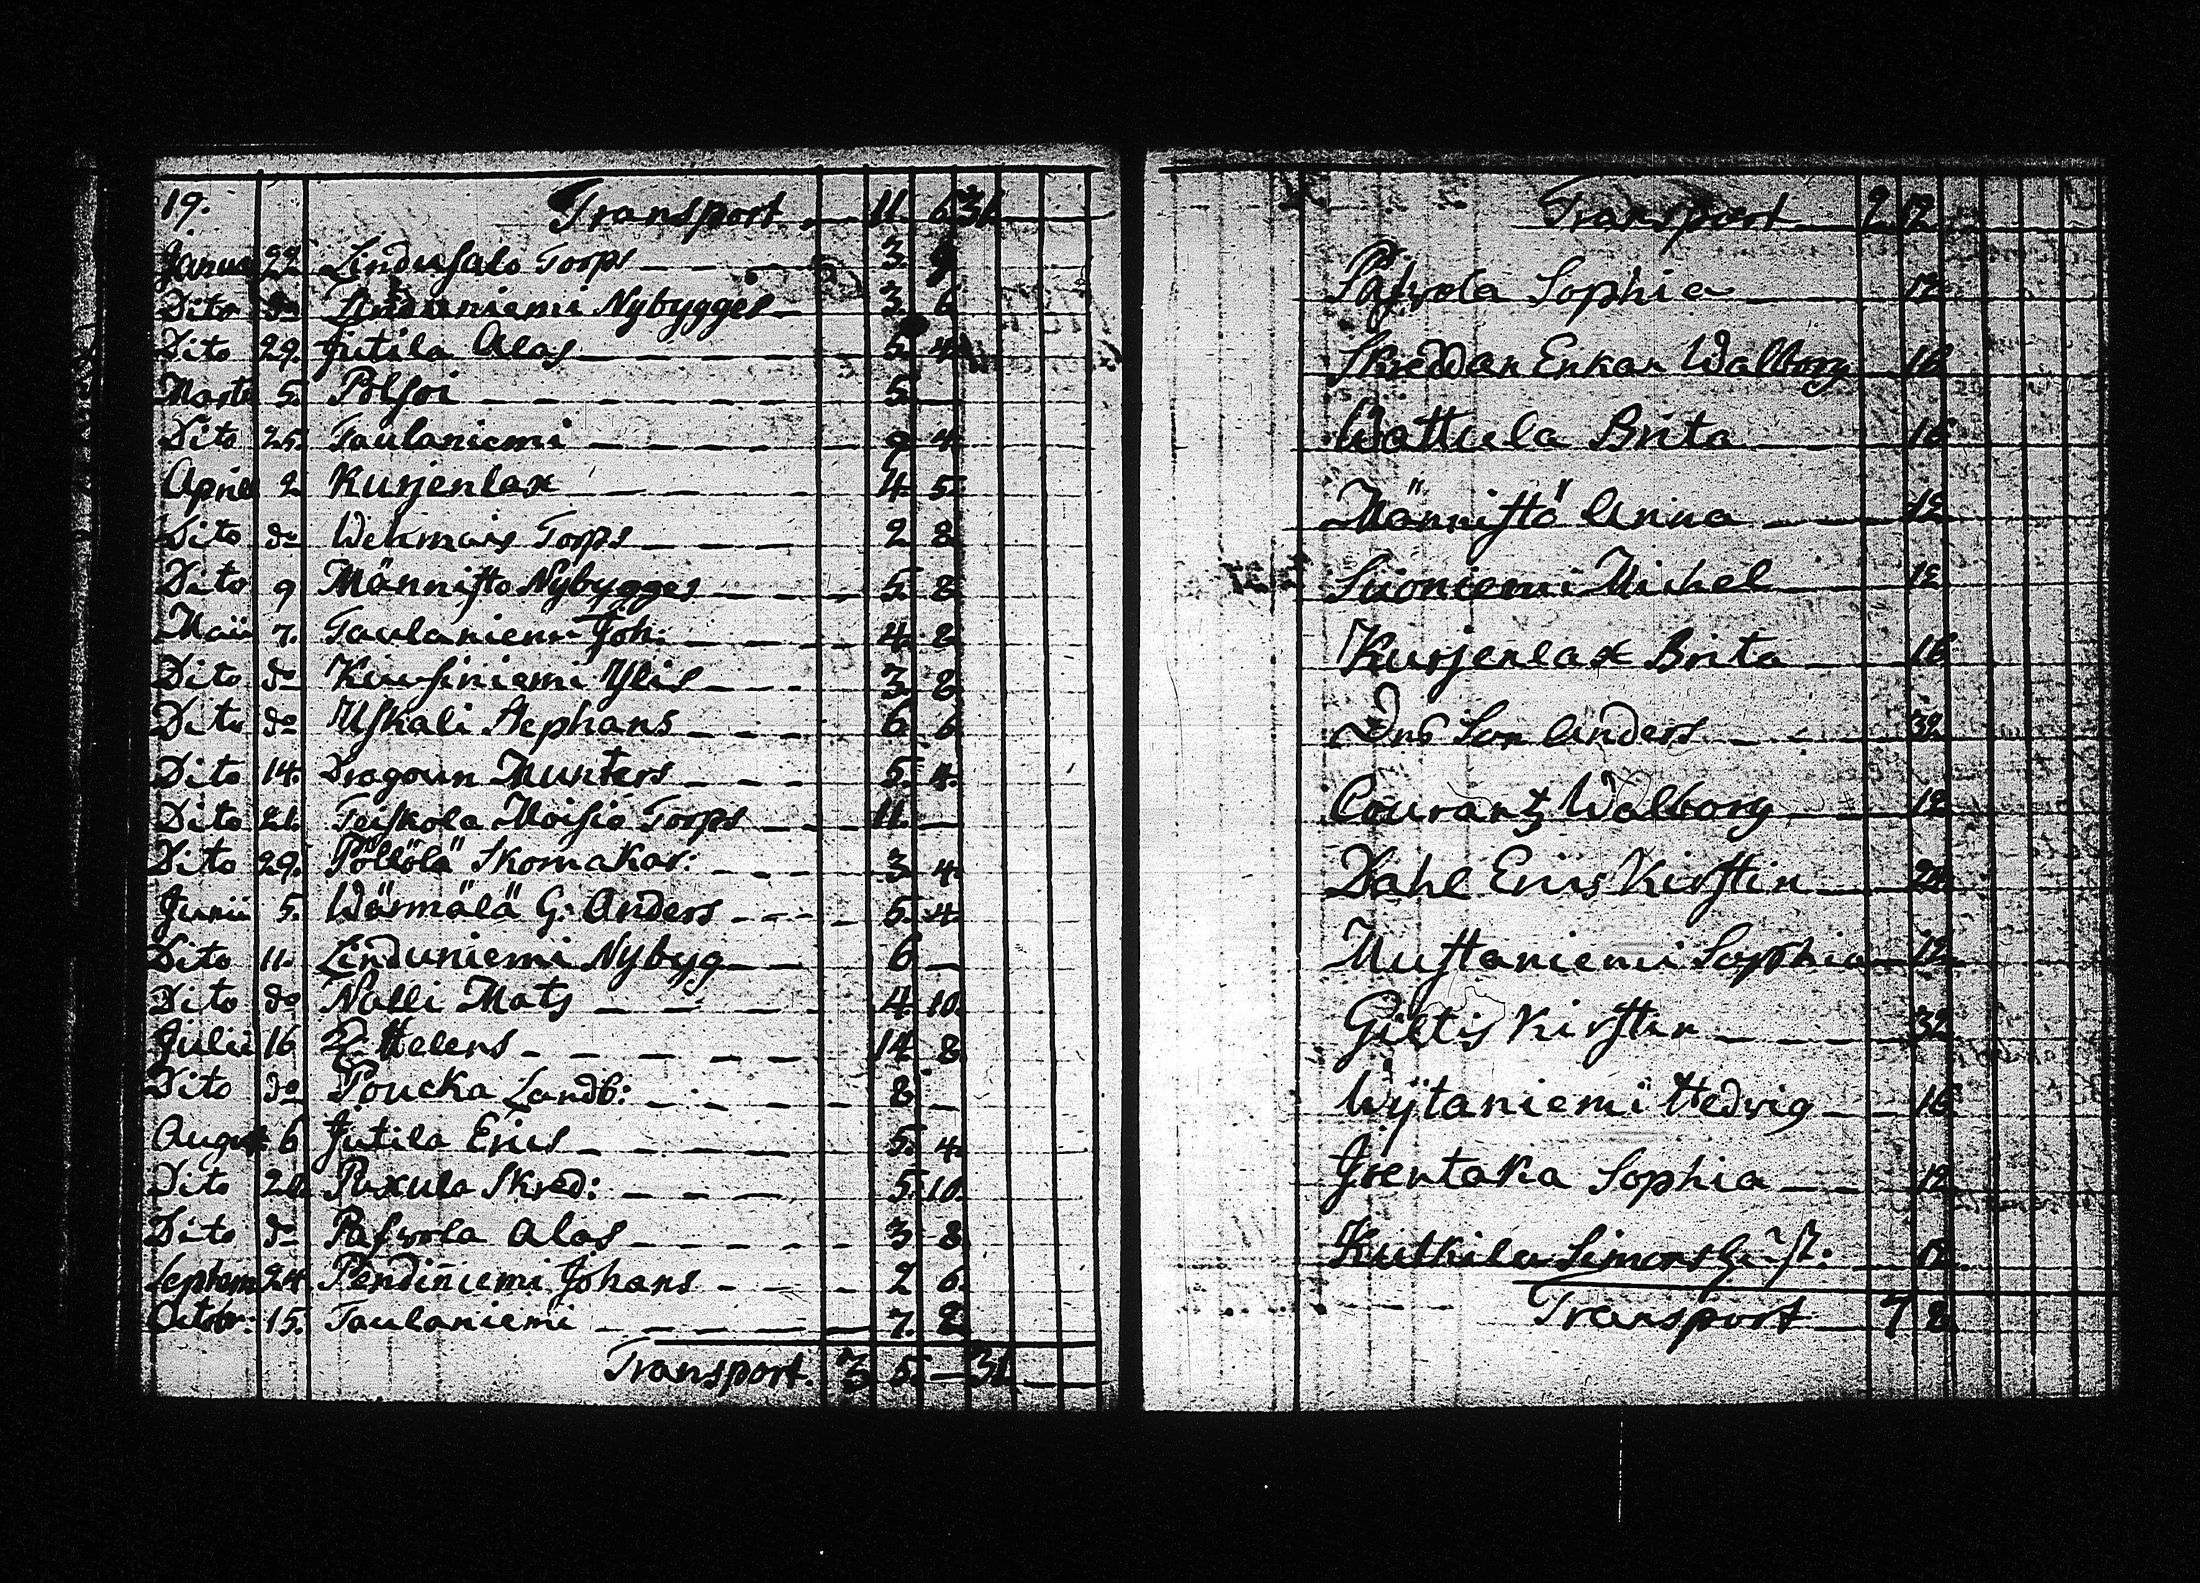 19. Transport 11. 6 31
Janua 22. Lindusalo Torps 3.
Dito do Linduniemi Nybygges 3. 6
Dito 29. Jutila Alas 5. 4.
Marti 5. Polsoi 5. —
Dito 25. Taulaniemi 9 4.
April 2 Kurjenlax 4. 5.
Dito do Wehmais Torps 2 8
Dito 9 Männistö Nybygges 5. 8
Maii 7. Taulaniemi Joh: 4. 8
Dito do Kiusiniemi Ylis 3 8
Dito do Uskali Stephans 6 6
Dito 14. Dragoun Munters 5. 4.
Dito 21. Teiskola Moisio Torps 11. —
Dito 29. Pöllölä Skomakar: 3 4.
Junii 5. Wärmälä G: Anders 5. 4.
Dito 11. Linduniemi Nybyg 6 —
Dito do Nalli Mats 4. 10.
Julii 16 Helens 14 8
Dito do Poucka Landb: 8 —
August 6 Jutila Erics 5. 4.
Dito 21. Paxula Skred: 5. 10.
Dito do Pafwola Alas 3 8
Septem 24. Pendiniemi Johans 2 6.
Octobr: 15. Taulaniemi 7. 2
Transport. 3 5. — 31
Transport 2 12
Pafwola Sophia 12
Skreddar Enkan Walborg 16
Wattula Brita 16
Männistö Anna 12
Suoniemi Michel 12
Kurjenlax Brita 16
Dns Son Anders 32
Courantz Walborg 12
Dahl Erics Kirstin 24
Mustaniemi Sophia 12
Giltis Kirstin 32
Wijtaniemi Hedvig 16
Jrentaka Sophia 12
Kutkila Simons 12.
Transport 7 8